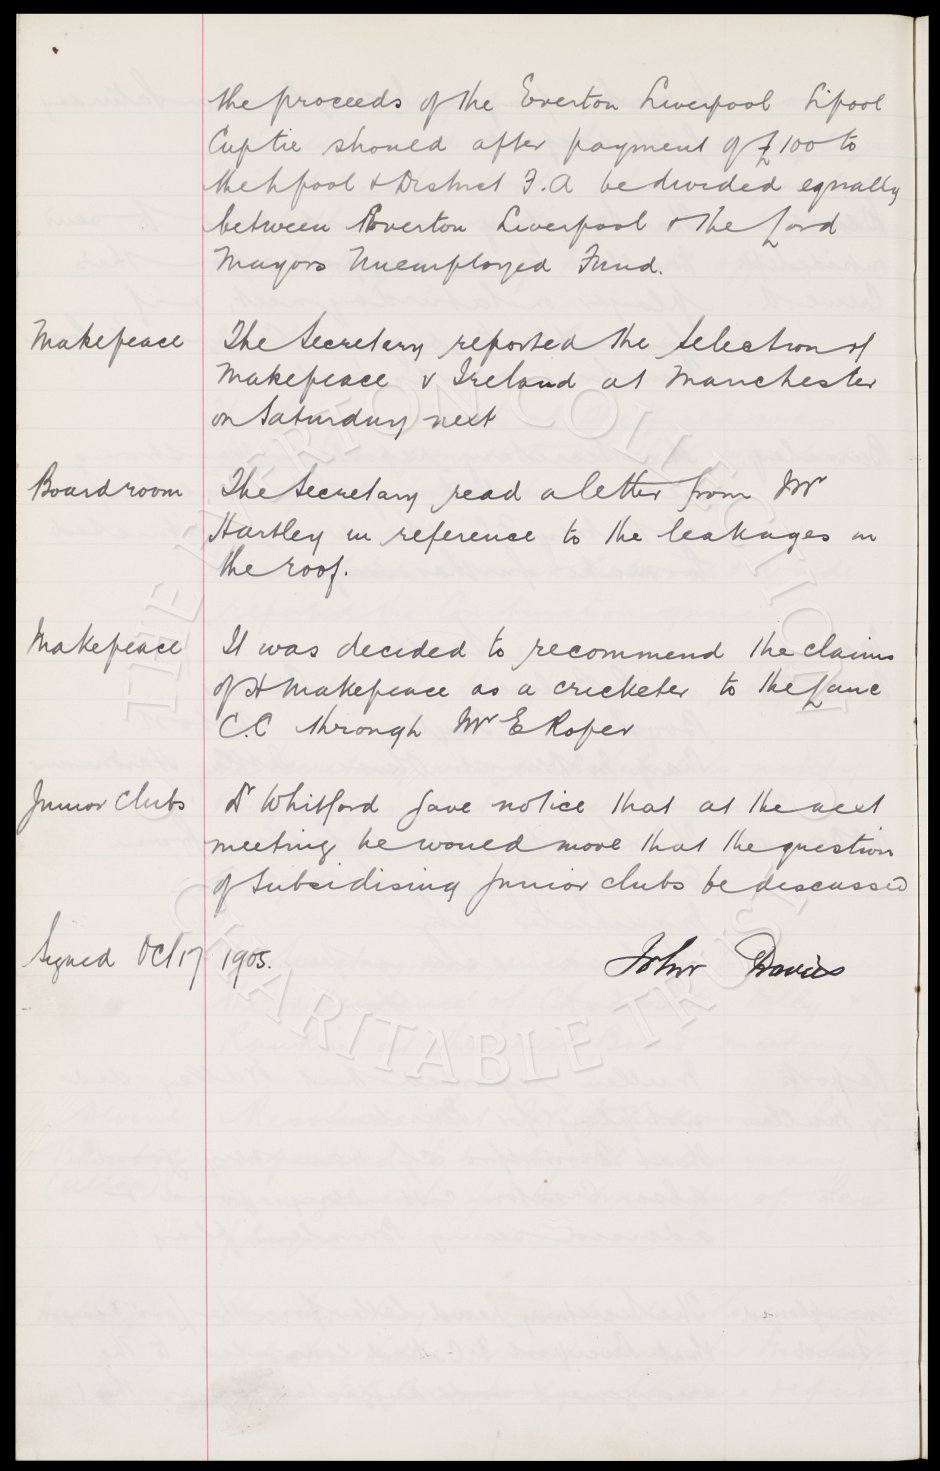 the proceeds of the Everton Liverpool Lipool
Cuptie should after payment of £100 to
the Lpool & District F.A be divided equally
between Everton Liverpool & the Lord
Mayors Unemployed Fund.
Makepeace The Secretary reported the selection of
Makepeace v Ireland at Manchester
on Saturday next
Boardroom The Secretary read a letter from Mr
Hartley in reference to the leakages in
the roof.
Makepeace It was decided to recommend the claims
of H Makepeace as a cricketer to the Lanc
C.C through Mr E Roper
Junior Clubs Dr Whitford gave notice that at the next
meeting he would move that the question
of subsidising junior clubs be discussed
Signed Oct 17 1905. John Davies
THE EVERTON COLLECTION
CHARITABLE TRUST